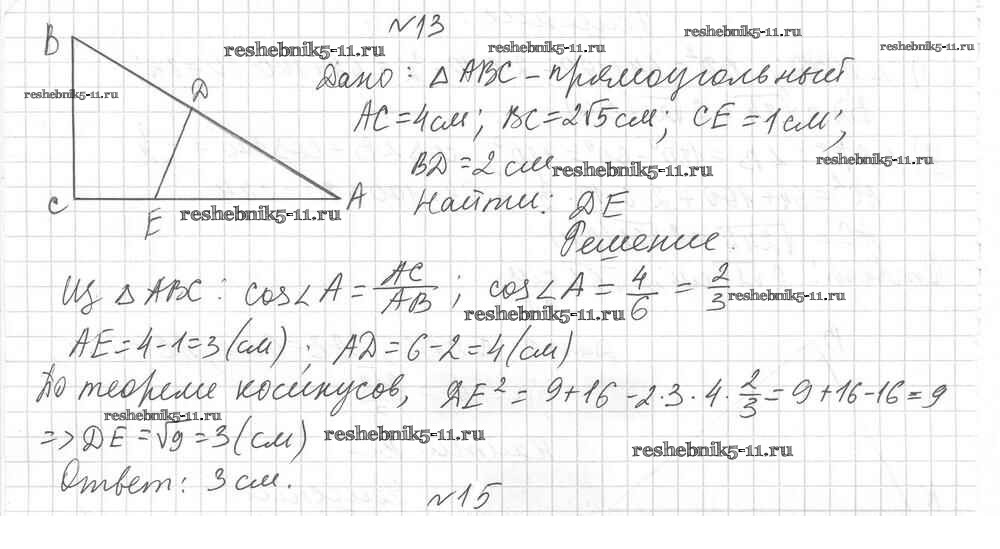 №13
reshebnik5-11.ru
reshebnik5-11.ru
reshebnik5-11.ru
reshebnik5-11.ru
B
D
reshebnik5-11.ru
C
E
A
reshebnik5-11.ru
Дано: △ ABC – прямоугольный
AC = 4 см; BC = 2√5 см; CE = 1 см;
reshebnik5-11.ru
BD = 2 см
reshebnik5-11.ru
Найти: DE
Решение.
Из △ ABC: cos∠A = AC/AB; cos∠A = 4/6 = 2/3
reshebnik5-11.ru
reshebnik5-11.ru
AE = 4 - 1 = 3 (см). AD = 6 - 2 = 4 (см)
По теореме косинусов, DE² = 9 + 16 - 2·3·4·2/3 = 9 + 16 - 16 = 9
reshebnik5-11.ru
=> DE = √9 = 3 (см)
reshebnik5-11.ru
reshebnik5-11.ru
Ответ: 3 см.
№15